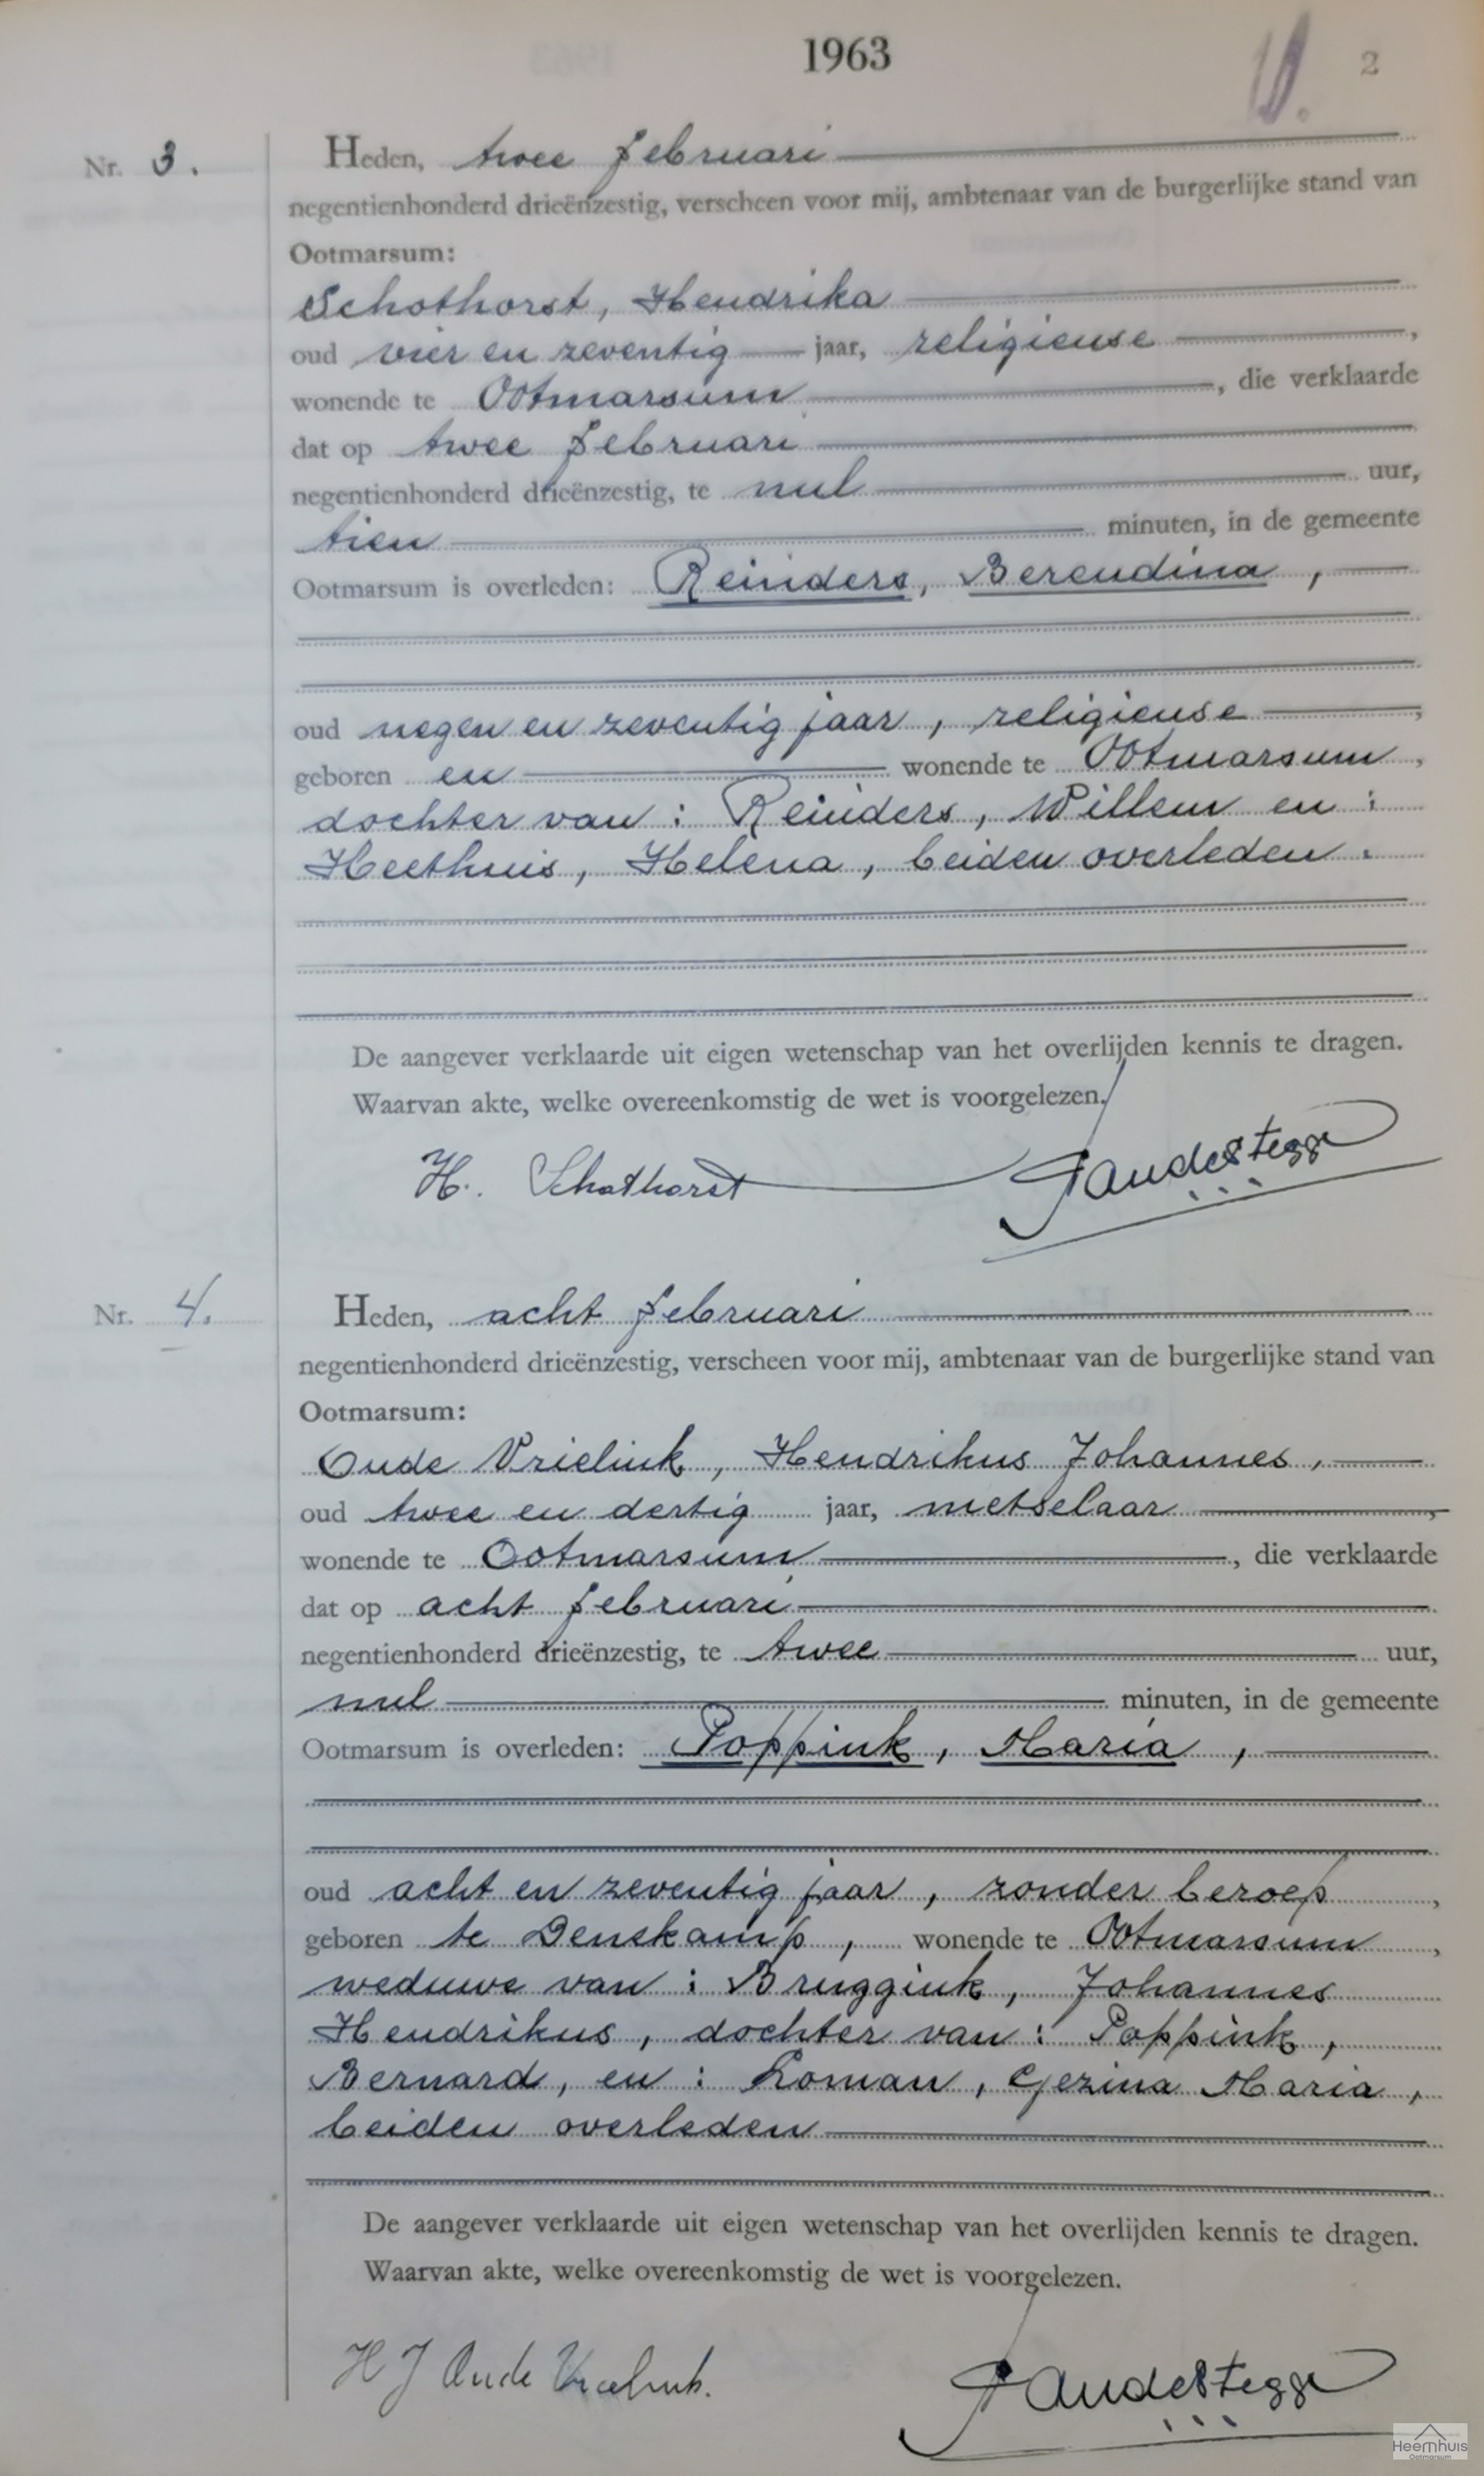 1963
2
Nr. 3.
Heden, twee februari
negentienhonderd drieënzestig, verscheen voor mij, ambtenaar van de burgerlijke stand van
Ootmarsum:
Schothorst, Hendrika
oud vier en zeventig jaar, religieuse,
wonende te Ootmarsum, die verklaarde
dat op twee februari
negentienhonderd drieënzestig, te nul uur,
tien minuten, in de gemeente
Ootmarsum is overleden: Reinders, Berendina,
oud negen en zeventig jaar, religieuse,
geboren en wonende te Ootmarsum,
dochter van: Reinders, Willem en:
Heethuis, Helena, beiden overleden.
De aangever verklaarde uit eigen wetenschap van het overlijden kennis te dragen.
Waarvan akte, welke overeenkomstig de wet is voorgelezen.
H. Schothorst
Nr. 4.
Heden, acht februari
negentienhonderd drieënzestig, verscheen voor mij, ambtenaar van de burgerlijke stand van
Ootmarsum:
Oude Vrielink, Hendrikus Johannes,
oud twee en dertig jaar, metselaar,
wonende te Ootmarsum, die verklaarde
dat op acht februari
negentienhonderd drieënzestig, te twee uur,
nul minuten, in de gemeente
Ootmarsum is overleden: Poppink, Maria,
oud acht en zeventig jaar, zonder beroep,
geboren te Denekamp, wonende te Ootmarsum,
weduwe van: Bruggink, Johannes
Hendrikus, dochter van: Poppink,
Bernard, en: Loman, Gezina Maria,
beiden overleden
De aangever verklaarde uit eigen wetenschap van het overlijden kennis te dragen.
Waarvan akte, welke overeenkomstig de wet is voorgelezen.
H J Oude Vrielink.
Heemhuis
Ootmarsum